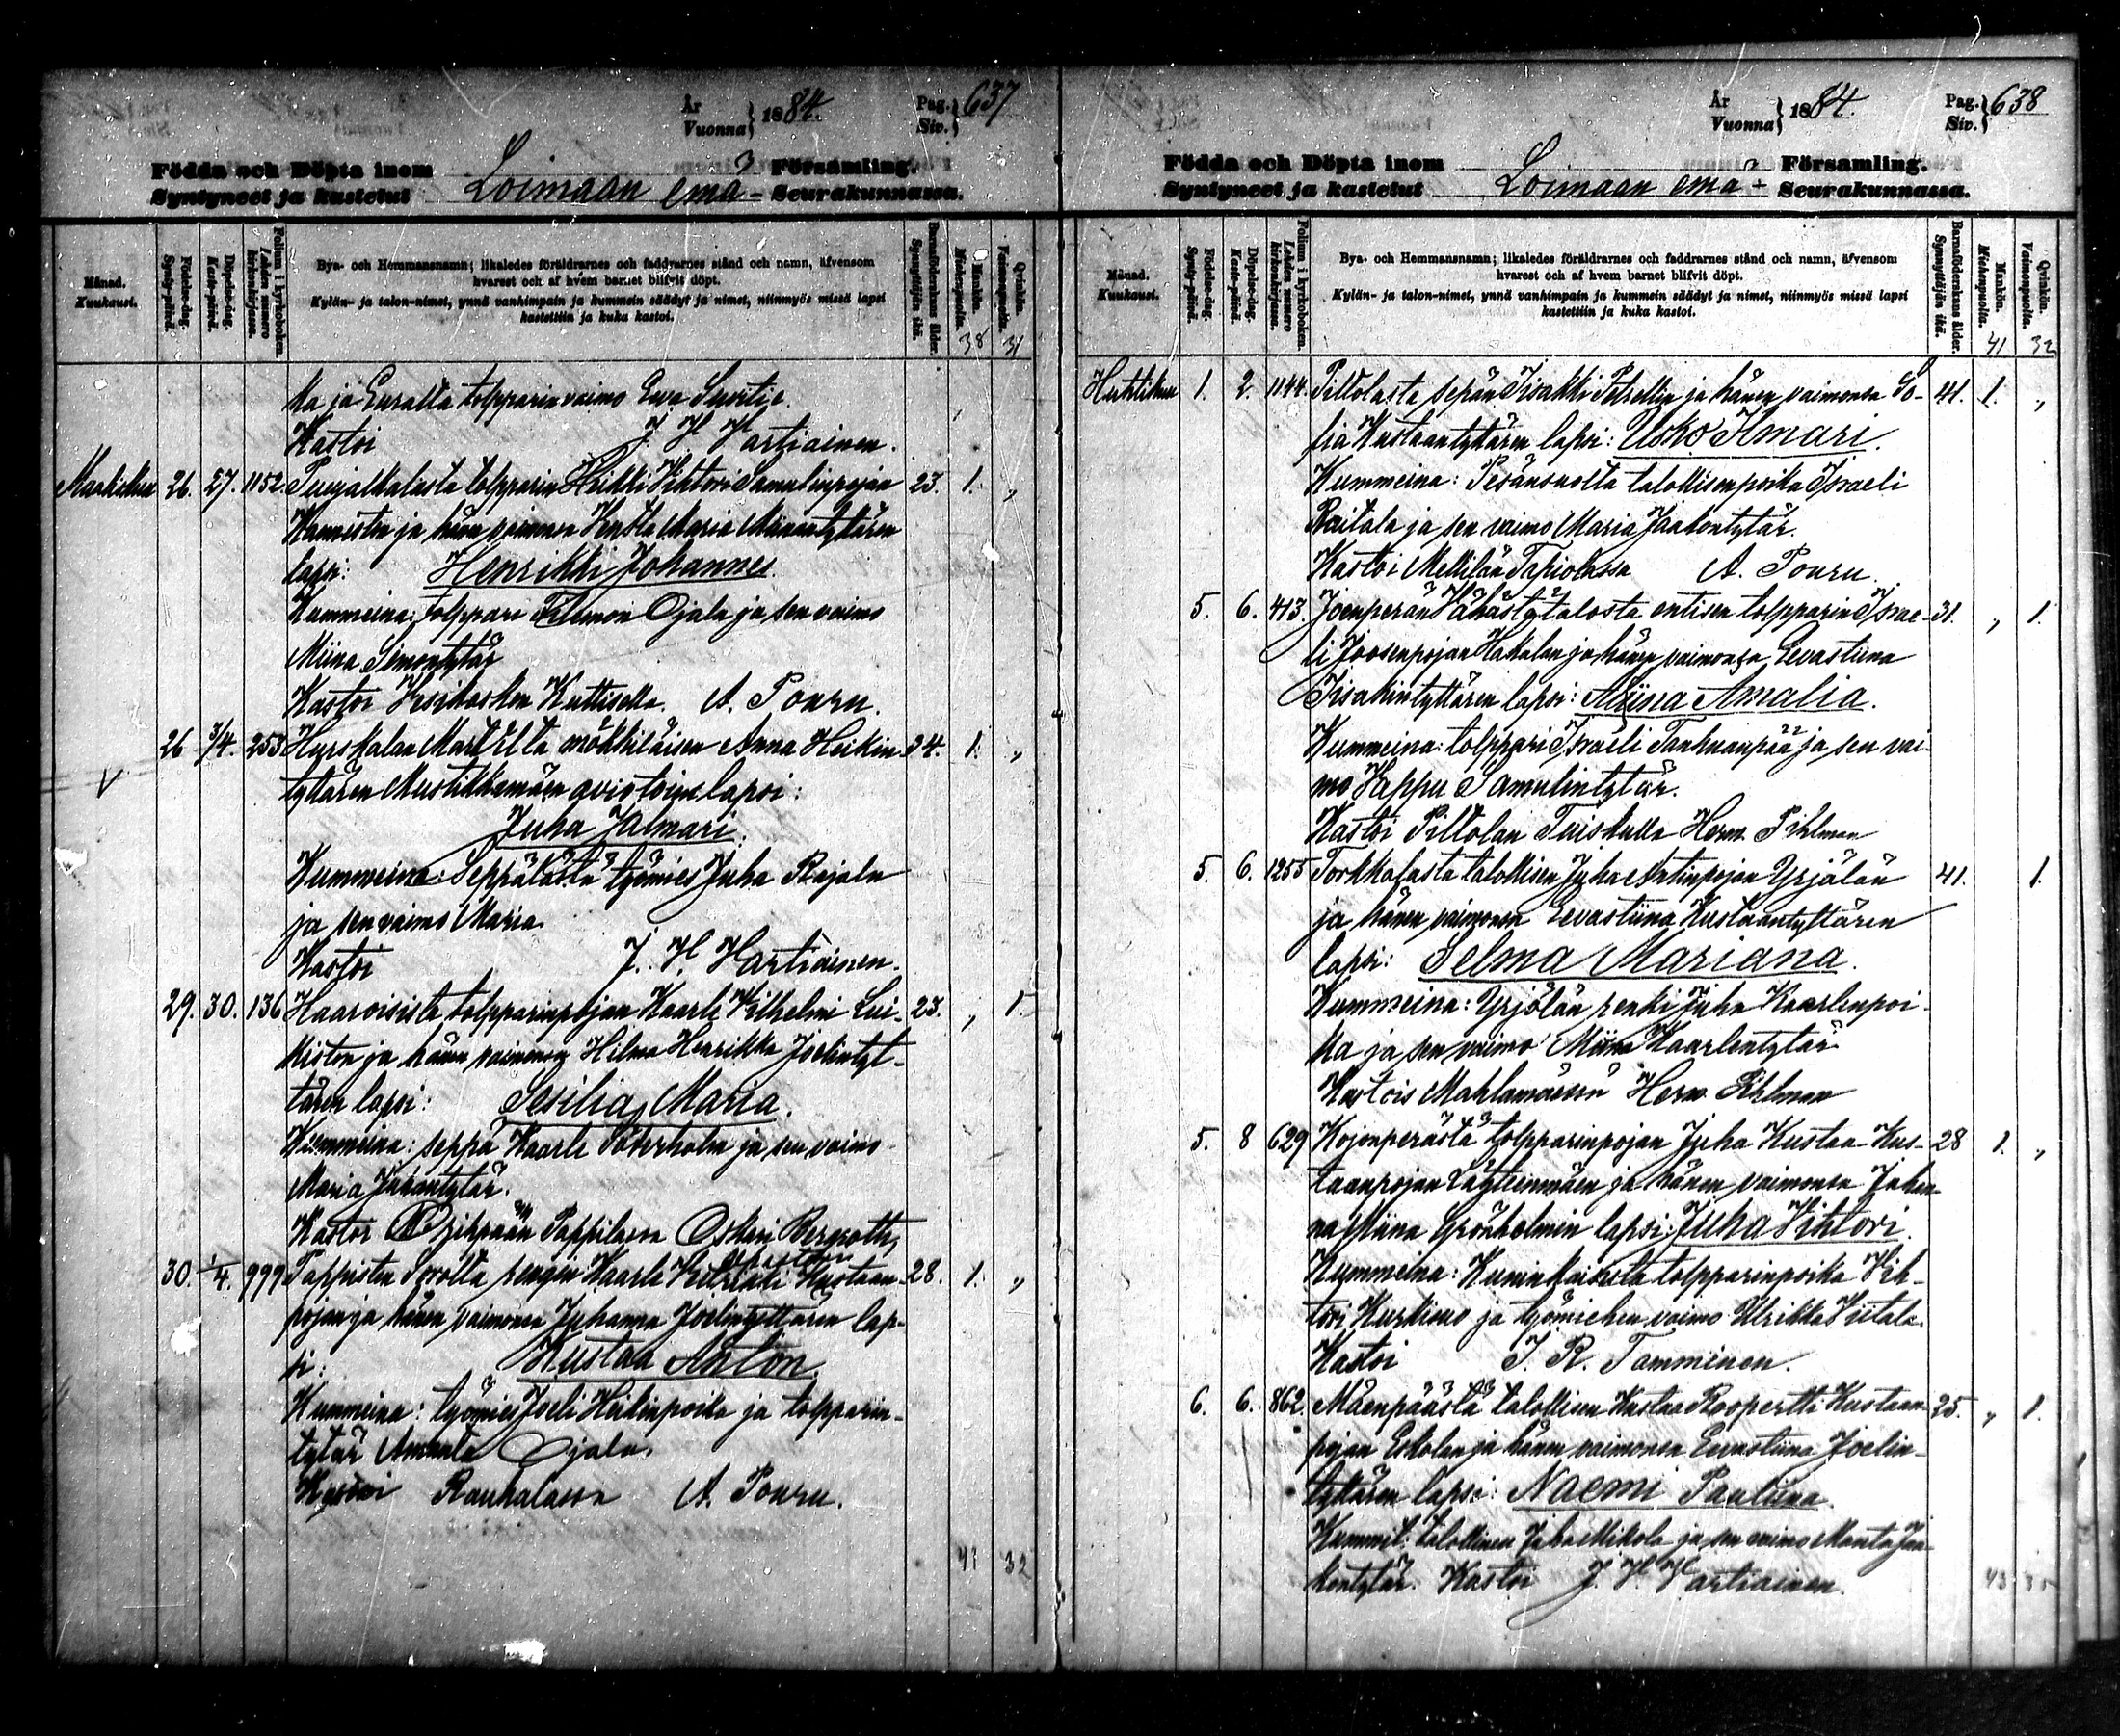 År
Vuonna } 1884.
Pag.
Siv. } 637
Födda och Döpta inom Församling.
Syntyneet ja kastetut Loimaan emä- Seurakunnassa.
Månad.
Kuukausi.
Födelse-dag.
Synty-päivä.
Döpelse-dag.
Kaste-päivä.
Folium i kyrkoboken.
Lehden numero kirkonkirjassa.
Bya- och Hemmansnamn; likaledes föräldrarnes och faddrarnes stånd och namn, äfvensom
hvarest och af hvem barnet blifvit döpt.
Kylän- ja talon-nimet, ynnä vanhimpain ja kummein säädyt ja nimet, niinmyös missä lapsi
kastettiin ja kuka kastoi.
Barnaföderskans ålder.
Synnyttäjän ikä.
Mankön.
Miehenpuolta.
Qvinkön.
Vaimonpuolta.
38 31
ka ja Euralta torpparin vaimo Eeva
Kastoi J. H. Hartiainen.
Maaliskuu 26. 27. 1152. torpparin Heikki Vihtori Samulinpojan 23. 1. „
ja hänen vaimonsa Maria
lapsi: Henrikki Johannes
Kummeina: Torppari Filemon Ojala ja sen vaimo
Miina Simontytär
Kastoi Vesikosken A. Pouru.
26 3/4. 253 Hyrskalan mökkiläisen Anna Heikin- 34. 1. „
tyttären aviotoin lapsi:
Juha Jalmari.
Kummeina: Seppälästä työmies Juha Rajala
ja sen vaimo Maria
Kastoi J. H. Hartiainen.
29. 30. 136 Haaroisista torpparinpojan Kaarle Vilhelmi Lui- 23. „ 1.
kiston ja hänen vaimonsa Hilma Henrikka Joelintyt-
tären lapsi: Sesilia Maria.
Kummeina: seppä Kaarle Söderholm ja sen vaimo
Maria Juhantytär.
Kastoi Oripään Pappilassa Oskari Bergroth,
30. 1/4. 999 rengin Kaarle Kustaan- 28. 1. „
pojan ja hänen vaimonsa Juhanna Joelintyttären lap-
si: Kustaa Anton.
Kummeina: työmies Joeli Heikinpoika ja torpparin-
tytär Amanta Ojala.
Kastoi Rauhalassa A. Pouru.
41 32
År
Vuonna } 1884.
Pag.
Siv. } 638
Födda och Döpta inom Församling.
Syntyneet ja kastetut Loimaan emä- Seurakunnassa.
Månad.
Kuukausi.
Födelse-dag.
Synty-päivä.
Döpelse-dag.
Kaste-päivä.
Folium i kyrkoboken.
Lehden numero kirkonkirjassa.
Bya- och Hemmansnamn; likaledes föräldrarnes och faddrarnes stånd och namn, äfvensom
hvarest och af hvem barnet blifvit döpt.
Kylän- ja talon-nimet, ynnä vanhimpain ja kummein säädyt ja nimet, niinmyös missä lapsi
kastettiin ja kuka kastoi.
Barnaföderskans ålder.
Synnyttäjän ikä.
Mankön.
Miehenpuolta.
Qvinkön.
Vaimonpuolta.
41 32
Huhtikuu 1. 2. 1144. Piltolasta sepän Iisakki Petrellin ja hänen vaimonsa So- 41. 1. „
fia Kustaantyttären lapsi: Usko Ilmari.
Kummeina: Pesänsuolta talollisenpoika Israeli
Raitala ja sen vaimo Maria Jaakontytär.
Kastoi Mellilän Tapiolassa A. Pouru.
5. 6. 413. Joenperän Vähästätalosta entisen torpparin Israe- 31. „ 1.
li Joosenpojan Hakalan ja hänen vaimonsa Eevastiina
Iisakintyttären lapsi: Miina Amalia.
Kummeina: torppari Israeli Tanhuanpää ja sen vai-
mo Vappu Samulintytär.
Kastoi Piltolan Tuiskulla Herm. Pihlman
5. 6. 1255 Torkkalasta talollisen Juha Antinpojan Yrjälän 41. 1.
ja hänen vaimonsa Eevastiina Kustaantyttären
lapsi: Selma Mariana.
Kummeina: Yrjälän renki Juha Kaarlenpoi-
ka ja sen vaimo Miina Kaarlentytär
Kastoi Mahlamäessä Herm. Pihlman
5. 8 629 Kojonperästä torpparinpojan Juha Kustaa Kus- 28 1. „
taanpojan ja hänen vaimonsa Johan-
na Miina Grönholmin lapsi: Juha Vihtori.
Kummeina: torpparinpoika Vih-
tori ja työmiehen vaimo Ulrikka Viitala.
Kastoi J. R. Tamminen.
6. 6. 862 Mäenpäästä talollisen Kustaa Roopertti Kustaan- 25. „ 1.
pojan Eskolan ja hänen vaimonsa Eevastiina Joelin-
tyttären lapsi: Naemi Pauliina.
Kummit: talollinen Juha Mikola ja sen vaimo Manta Jaa-
kontytär. Kastoi J. H. Hartiainen.
43 35